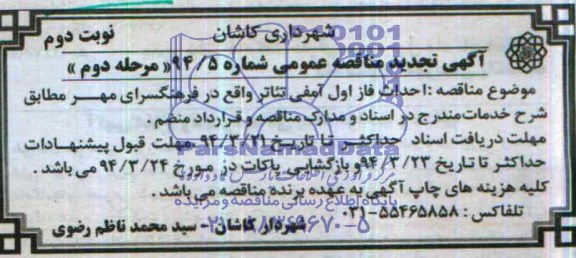 شهرداری کاشان
نوبت دوم
آگهی تجدید مناقصه عمومی شماره ۹۴/۵« مرحله دوم »
موضوع مناقصه :احداث فاز اول آمفی تئاتر واقع در فرهنگسرای مهر مطابق
شرح خدمات مندرج در اسناد و مدارک مناقصه و قرارداد منضم.
مهلت دریافت اسناد حداکثر تا تاریخ ۹۴/۳/۲۱ -مهلت قبول پیشنهادات
حداکثر تا تاریخ ۹۴/۳/۲۳و بازگشایی پاکات در مورخ ۹۴/۳/۲۴ می باشد .
کلیه هزینه های چاپ آگهی به عهده برنده مناقصه می باشد .
پایگاه اطلاع رسانی مناقصه و مزایده
تلفاکس : ۵۵۴۶۵۸۵۸-۰۳۱
شهردار کاشان- سید محمد ناظم رضوی
ParsNamadData